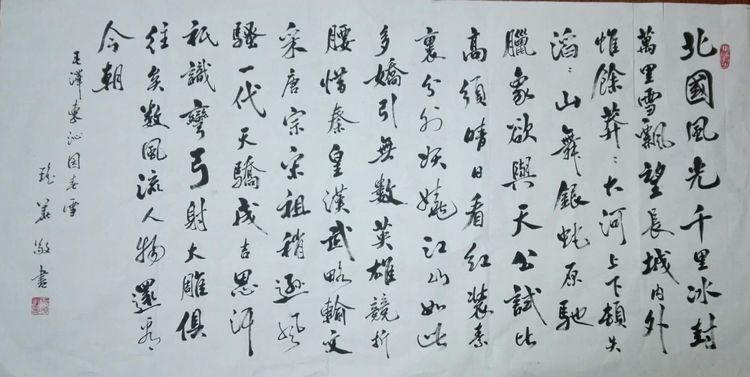 北國風光千里冰封
萬里雪飄望長城内外
惟餘莽〻大河上下頓失
滔〻山舞銀蛇原馳
臘象欲與天公試比
高須晴日看紅裝素
裹分外妖嬈江山如此
多嬌引無數英雄競折
腰惜秦皇漢武略輸文
采唐宗宋祖稍遜風
騷一代天驕成吉思汗
衹識彎弓射大雕俱
往矣数風流人物還看
今朝
毛澤東沁园春雪
書